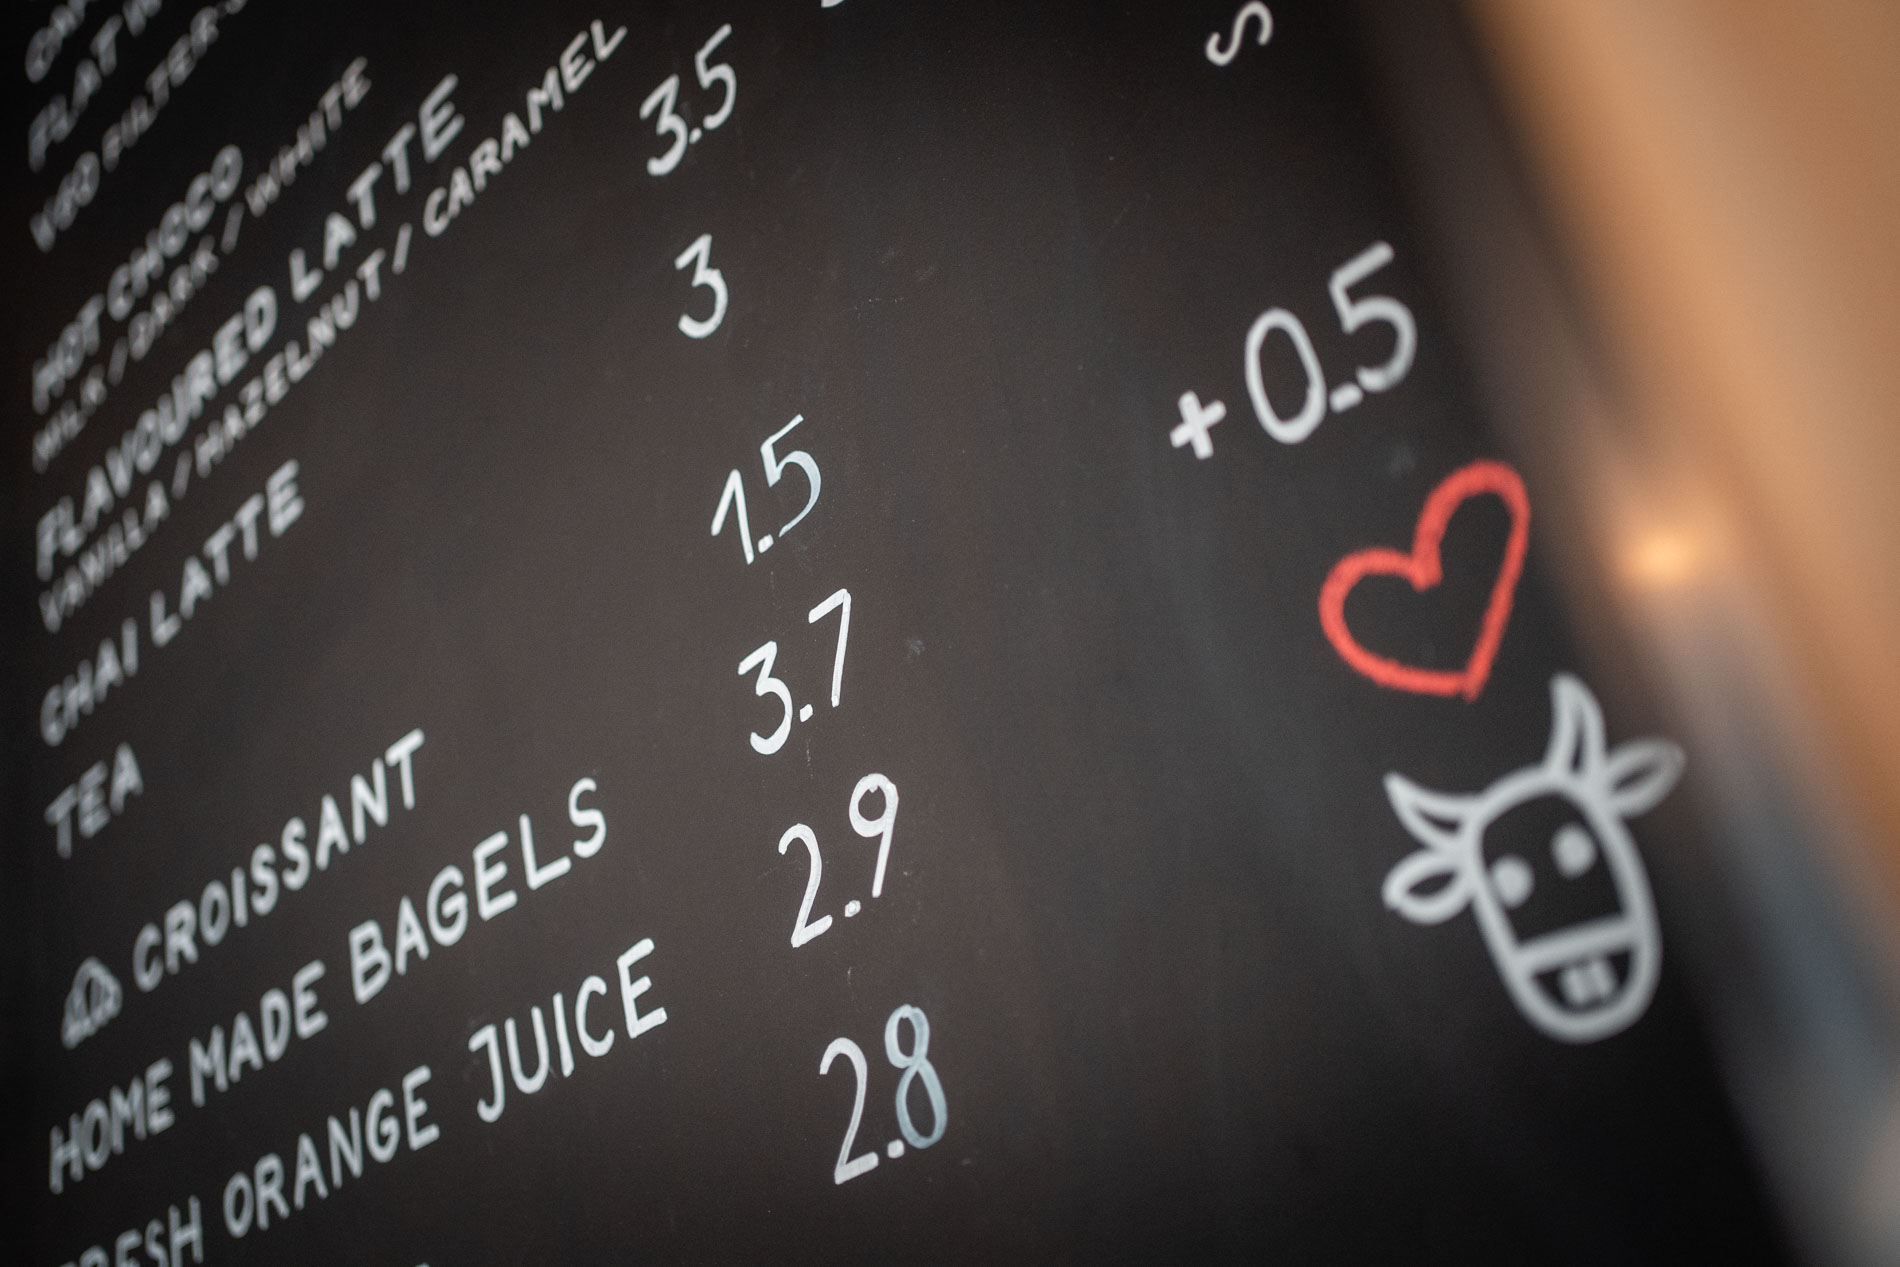 FLAT W
V60 FILTER
HOT CHOCO
MILK / DARK / WHITE
FLAVOURED LATTE
VANILLA / HAZELNUT / CARAMEL
CHAI LATTE 3.5
TEA 3
CROISSANT 1.5
HOME MADE BAGELS 3.7
FRESH ORANGE JUICE 2.9
2.8
S
+ 0.5